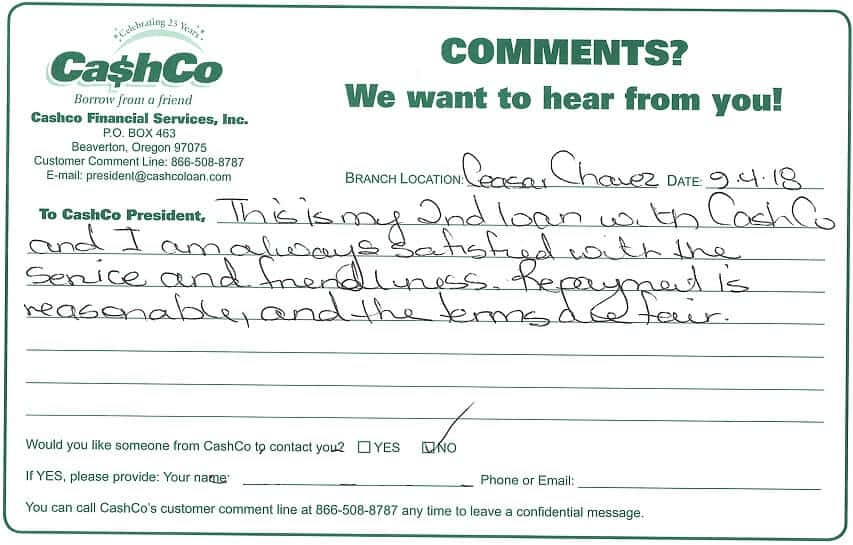 Celebrating 25 Years
Ca$hCo
Borrow from a friend
Cashco Financial Services, Inc.
P.O. BOX 463
Beaverton, Oregon 97075
Customer Comment Line: 866-508-8787
E-mail: president@cashcoloan.com
COMMENTS?
We want to hear from you!
BRANCH LOCATION: Ceasar Chavez DATE: 9.4.18
To CashCo President, This is my 2nd loan with CashCo
and I am always satisfied with the
service and friendliness. Repayment is
reasonable, and the terms are fair.
Would you like someone from CashCo to contact you? YES NO
If YES, please provide: Your name: Phone or Email:
You can call CashCo's customer comment line at 866-508-8787 any time to leave a confidential message.